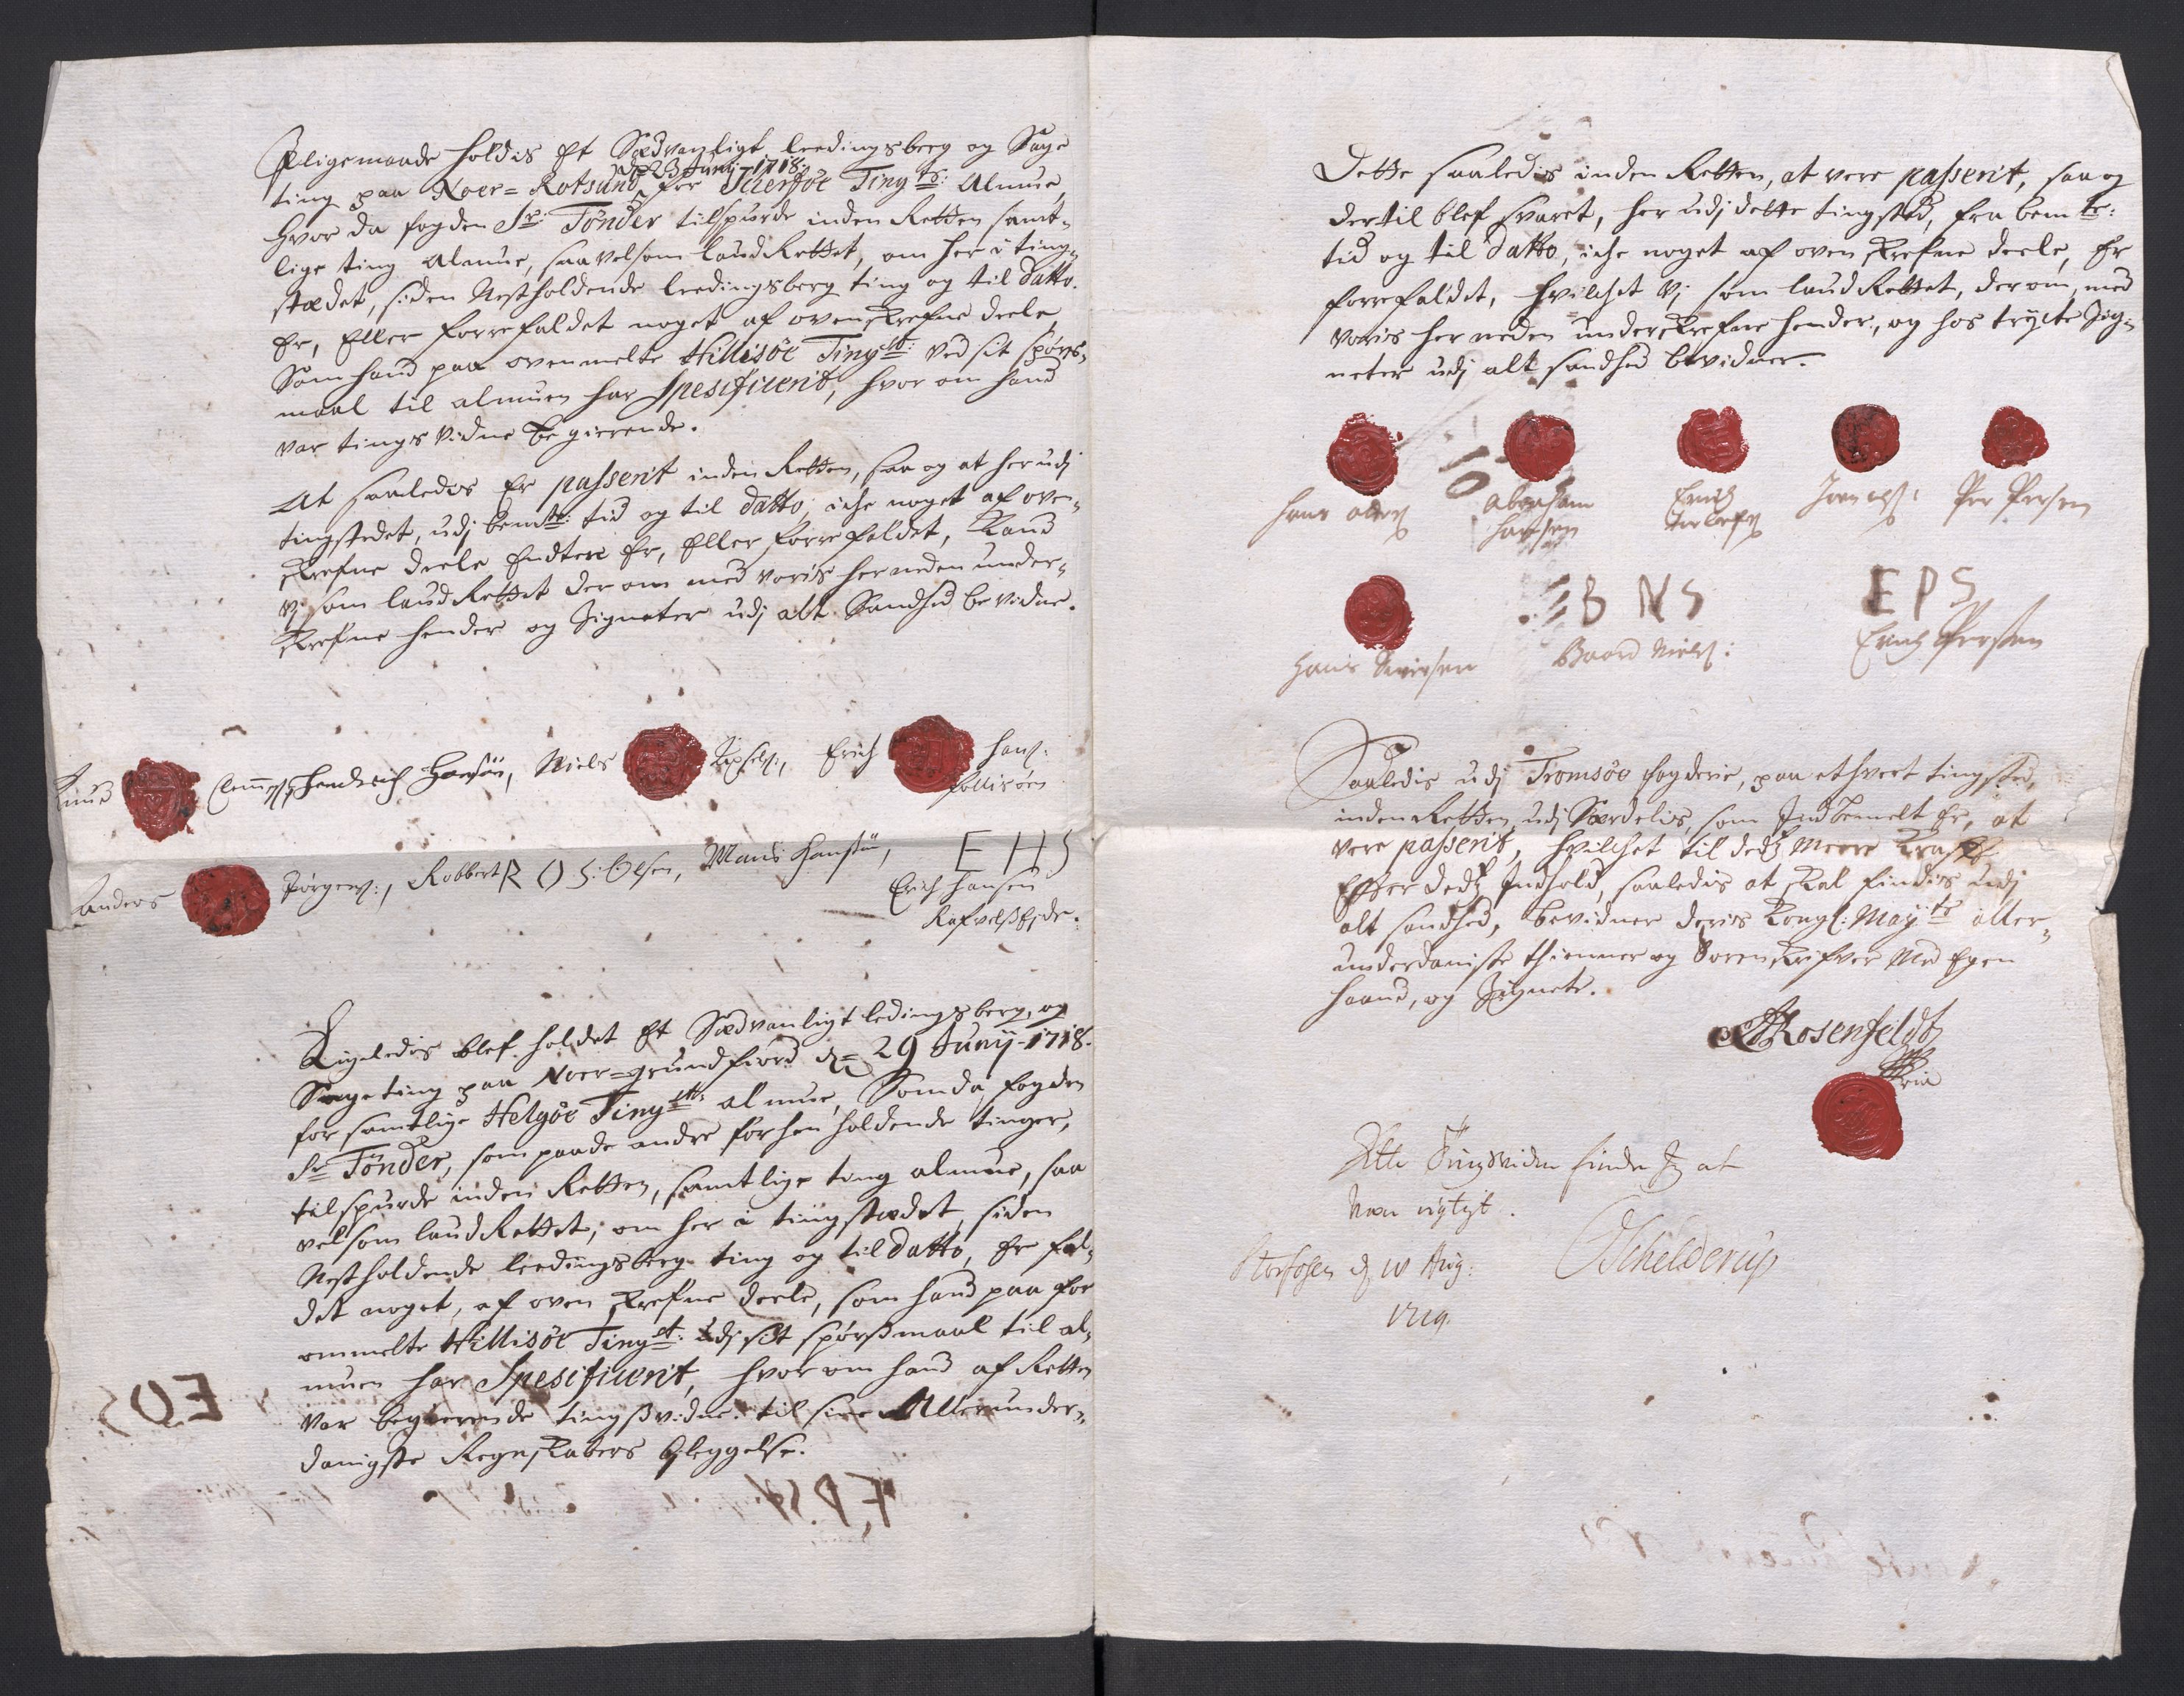 Lligemaade holdis Et Sædvanligt leedingsberg og Sage
ting paa Noer-Rotsund, d 23 Junij 1718. for Skierføe Tingsts: Almue,
hvor da fogden Sr: Tønder tilspurde inden Retten samt-
lige ting Almue, saavelsom laudRettet, om her i ting-
stædet, siden Nestholdende leedingsberg ting og til Datto.
Er, Eller forrefaldet noget af ovenskrefne deele
Som hand paa ovenmelte Hillisöe Tingst: ved sit spörs-
maal til almuen har Spesificerit, hvor om hand
var tingsvidne begierende.
At saaledis Er passerit inden Retten, saa og at her udj
tingstedet, udj bemte: tid og til Datto, iche noget af oven-
skrefne deele Endten Er, Eller forrefaldet, Kand
Vj som laudRettet der om med voris her neden under-
skrefne hender og Signeter udj alt Sandhed bevidne.
Knud Clemmen, Hendrich Hansön, Niels Jepsøn, Erich Hanss:
follisøen
Anders Jörgens:, Robbert R O S: Olsen, Mons Hansön, E H S
Erich Hansen
Rafvelsseide.
Ligeledis blef holdet Et Sædvanligt ledingsberg, og
Sageting paa Noer-grundfiord d= 29 Junij 1718.
for samtlige Helgöe Tingst: almue, Som da fogden
Sr Tönder, som paa de andre forhen holdende tinger,
tilspurde inden Retten, samtlige ting almue, saa
velsom laudRettet, om her i tingstædet, siden
Nestholdende leedingsberg ting og til Datto, Er fal-
det noget, af oven skrefne deele, som hand paa for
ommelte Hillisöe Tingst: udj sit spörsmaal til al-
muen har Spesificerit, hvor om hand af Retten
var begierende tingsvidne til sine Allerunder-
danigste Regnskabers Ofleggelse.
Dette saaledis inden Retten, at vere passerit, saa og
der til blef svaret, her udj dette tingsted, fra bemte:
tid og til Datto, iche noget af oven skrefne deele, Er
forrefaldet, hvilchet Vj som laudRettet, der om, med
voris her neden underskrefne hender, og hos trycte Sig-
neter udj alt sandhed bevidner.
Hans Abraham Hansen Erich Joen Ols: Per Persen
B N S E P S
Hans Siversen Baard Niels: Erich Persen
Saaledis udj Tromsöe fogderie, paa ethvert tingsted,
inden Retten, udj Særdelis, som Indbemelt Er, at
vere passerit, hvilchet til dess meere Krafft
Efter dess Indhold, saaledis at skal findes udj
alt sandhed, bevidner deris Kongl: Mayts aller-
underdanigste thienner og Sorenskrifver Med Egen
haand, og Signete.
Rosenfeldt
Mppria
Dette Tingsvidne finder Jeg at
Være rigtigt.
Storfosen d 10 Aug:
1719.
Schelderup